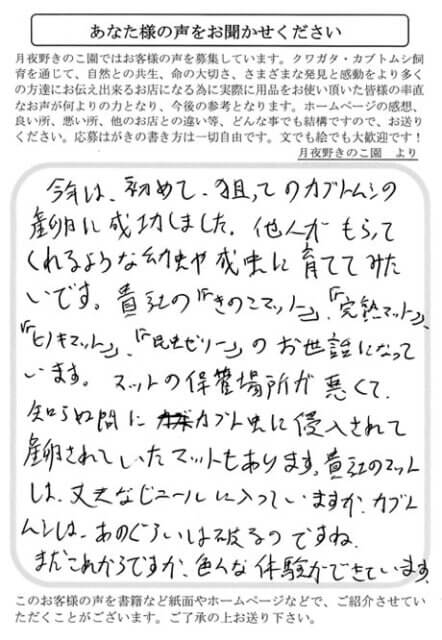 あなた様の声をお聞かせください
月夜野きのこ園ではお客様の声を募集しています。クワガタ・カブトムシ飼
育を通じて、自然との共生、命の大切さ、さまざまな発見と感動をより多く
の方達にお伝え出来るお店になる為に実際に用品をお使い頂いた皆様の率直
なお声が何よりの力となり、今後の参考となります。ホームページの感想、
良い所、悪い所、他のお店との違い等、どんな事でも結構ですので、お送り
ください。応募はがきの書き方は一切自由です。文でも絵でも大歓迎です！
月夜野きのこ園　より
今年は、初めて、狙ってのカブトムシの
産卵に成功しました。他人がもらって
くれるような幼虫や成虫に育ててみた
いです。貴社の「きのこマット」、「完熟マット」、
「ヒノキマット」、「昆虫ゼリー」のお世話になって
います。マットの保管場所が悪くて、
知らぬ間にカブト虫に侵入されて
産卵されていたマットもあります。貴社のマット
は、丈夫なビニールに入っていますが、カブト
ムシは、あのぐらいは破るのですね。
まだこれからですが、色んな体験ができています。
このお客様の声を書籍など紙面やホームページなどで、ご紹介させてい
ただくことがございます。ご了承の上お送り下さい。